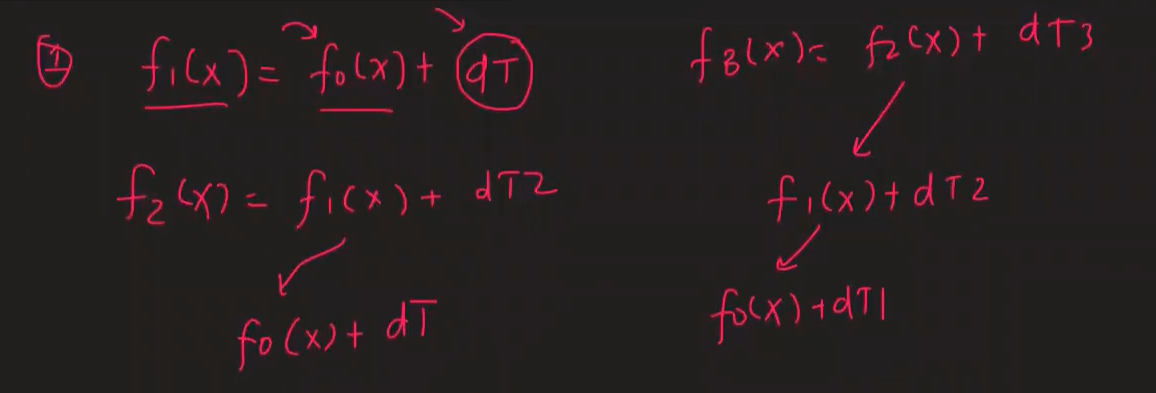 ① f₁(x) = f₀(x) + dT
f₂(x) = f₁(x) + dT2
f₀(x) + dT
f₃(x) = f₂(x) + dT3
f₁(x) + dT2
f₀(x) + dT1